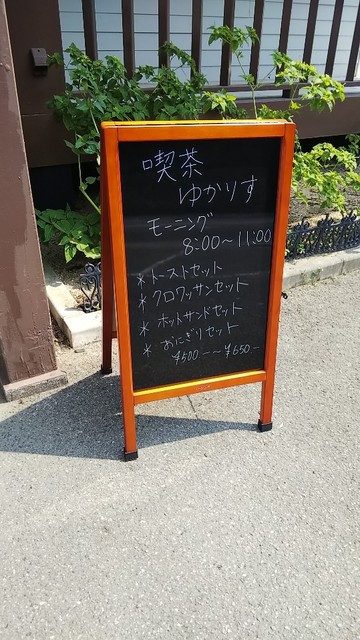 喫茶
ゆかりす
モーニング
8:00～11:00
*トーストセット
*クロワッサンセット
*ホットサンドセット
*おにぎりセット
¥500-～¥650-